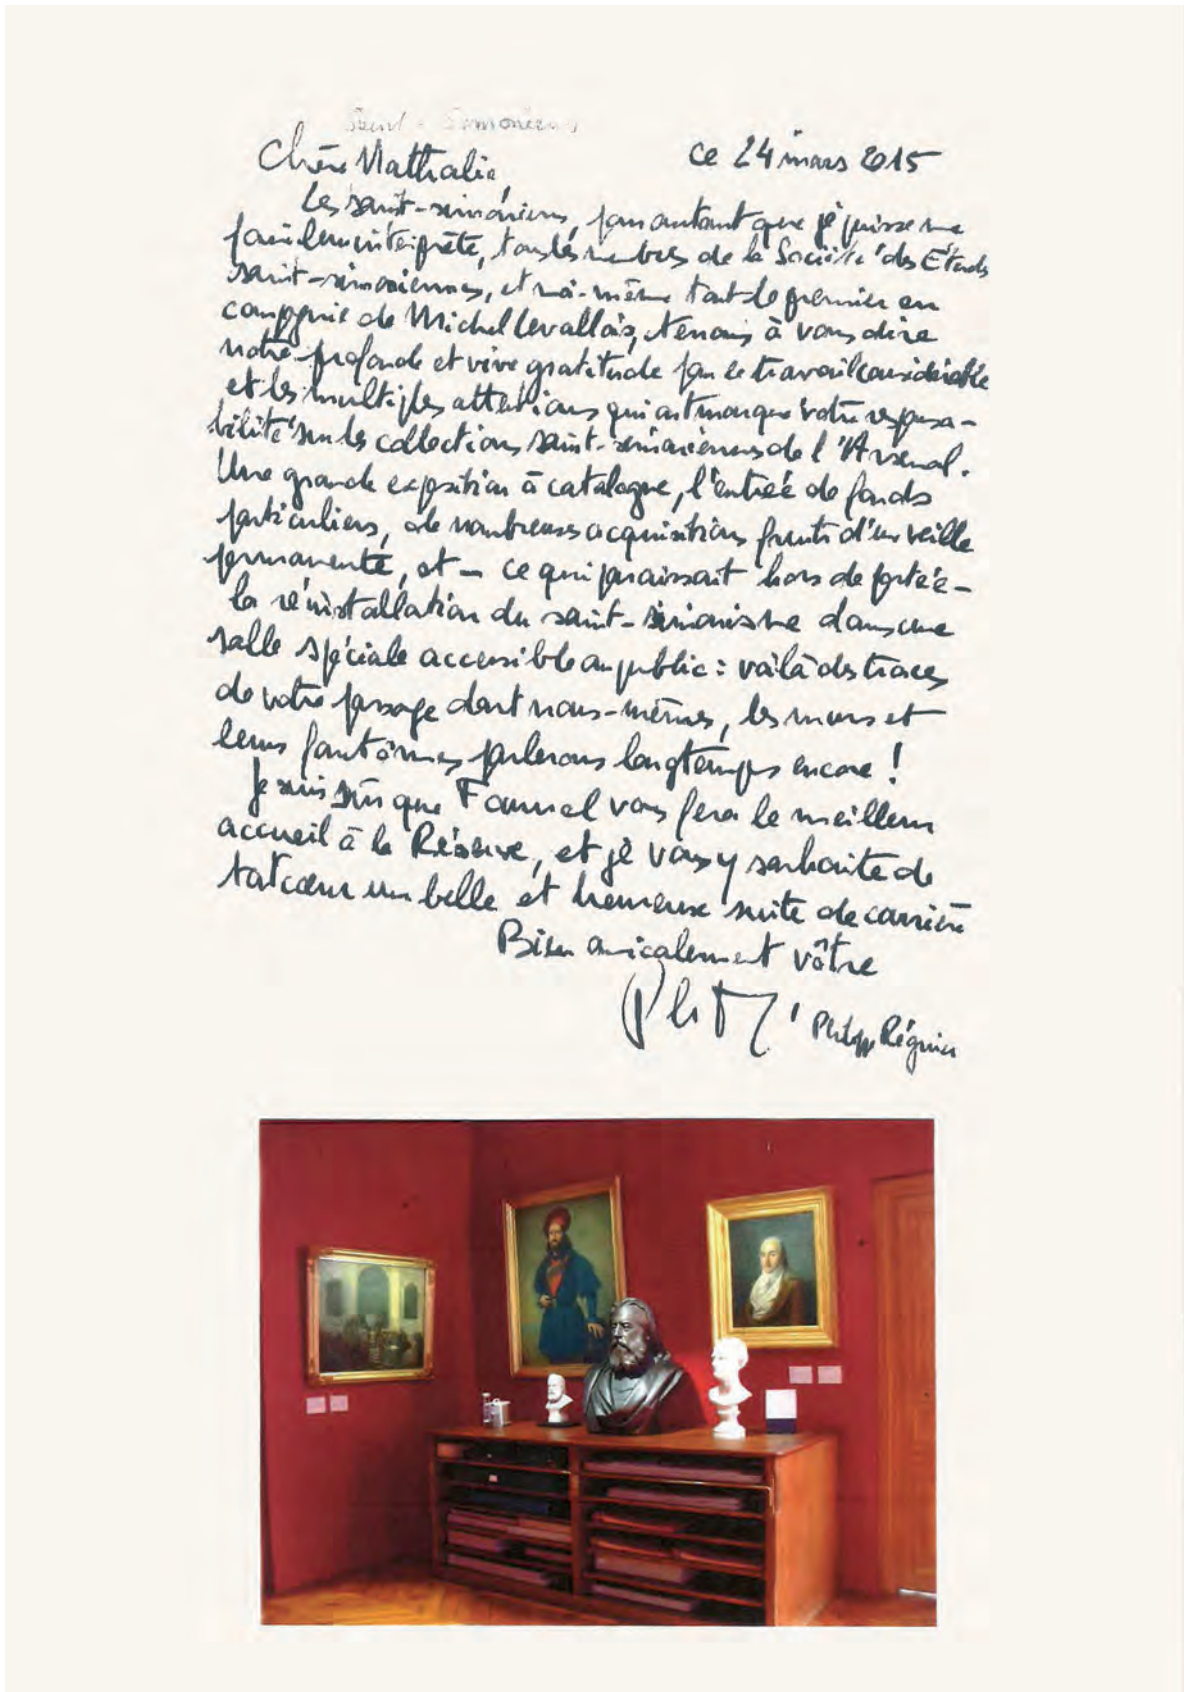 Saint-Simoniens
Chère Nathalie, ce 24 mars 2015
Les saint-simoniens, pour autant que je puisse me
faire leur interprète, tous les membres de la Société des Etudes
saint-simoniennes, et moi-même tout le premier en
compagnie de Michel Levallois, tenons à vous dire
notre profonde et vive gratitude pour le travail considérable
et les multiples attentions qui ont marqué votre responsa-
bilité sur les collections saint-simoniennes de l'Arsenal.
Une grande exposition à catalogue, l'entrée de fonds
particuliers, de nombreuses acquisitions fruits d'une veille
permanente, et – ce qui paraissait hors de portée –
la réinstallation du saint-simonisme dans une
salle spéciale accessible au public : voilà des traces
de votre passage dont nous-mêmes, les murs et
leurs fantômes parlerons longtemps encore !
Je suis sûr que vous fera le meilleur
accueil à la Réserve, et je vous y souhaite de
tout cœur une belle et heureuse suite de carrière
Bien amicalement vôtre
Philippe Régnier